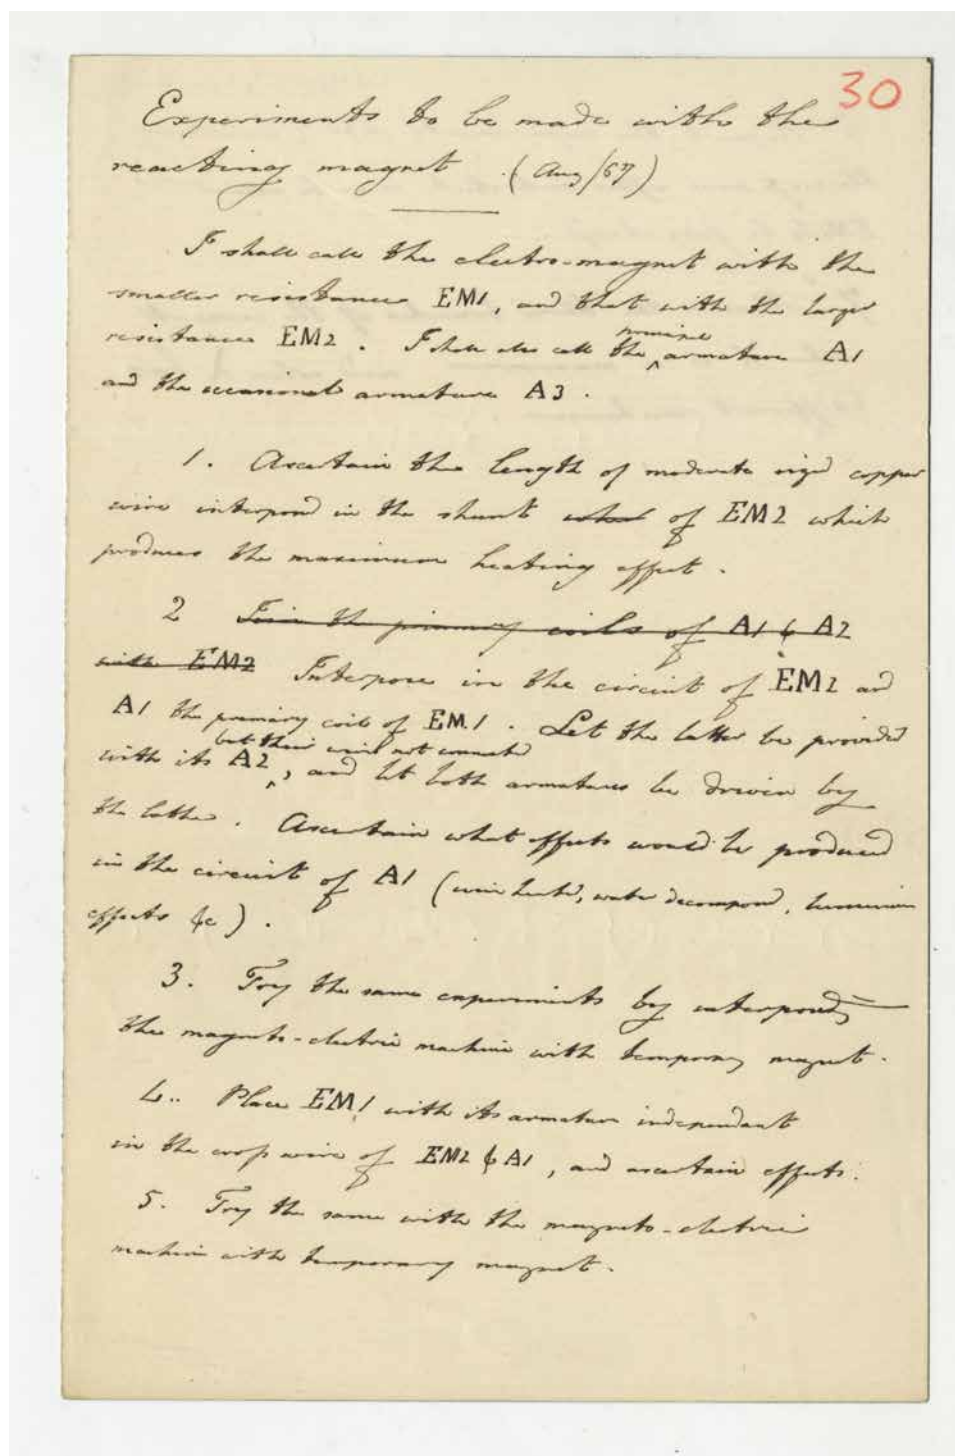 30
Experiments to be made with the
reacting magnet. (Aug/67)
I shall call the electro-magnet with the
smaller resistance EM1, and that with the larger
resistance EM2. I shall also call the armature A1
and the occasional armature A3.
1. Ascertain the length of moderate sized copper
wire interposed in the shunt of EM2 which
produces the maximum heating effect.
2 Join the primary coils of A1 & A2
with EM2 Interpose in the circuit of EM2 and
A1 the primary coil of EM1. Let the latter be provided
but their wires not connected
with its A2, and let both armatures be driven by
the lathe. Ascertain what effects would be produced
in the circuit of A1 (wire heated, water decomposed, luminous
effects &c).
3. Try the same experiments by interposing
the magneto-electric machine with temporary magnet.
4.. Place EM1 with its armature independent
in the cross wire of EM2 & A1, and ascertain effects.
5. Try the same with the magneto-electric
machine with temporary magnet.